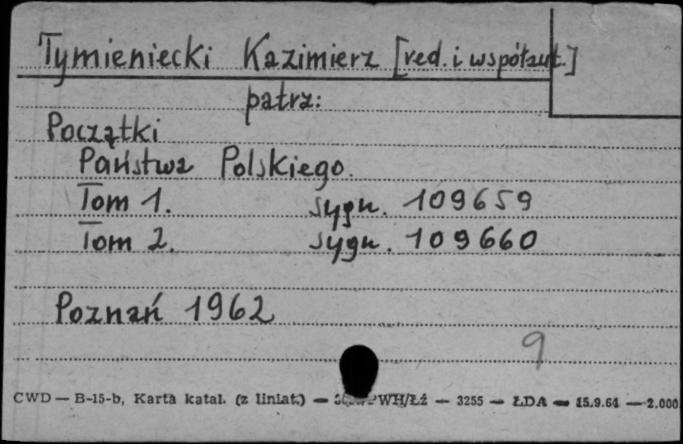 Tymieniecki Kazimierz [red. i współaut.]
patrz:
Początki
Państwa Polskiego.
Tom 1. sygn. 109659
Tom 2. sygn. 109660
Poznań 1962
9
CWD — B-15-b, Karta katal. (z liniat.) — PWH/Łź — 3255 — ŁDA — 15.9.61 — 2.000